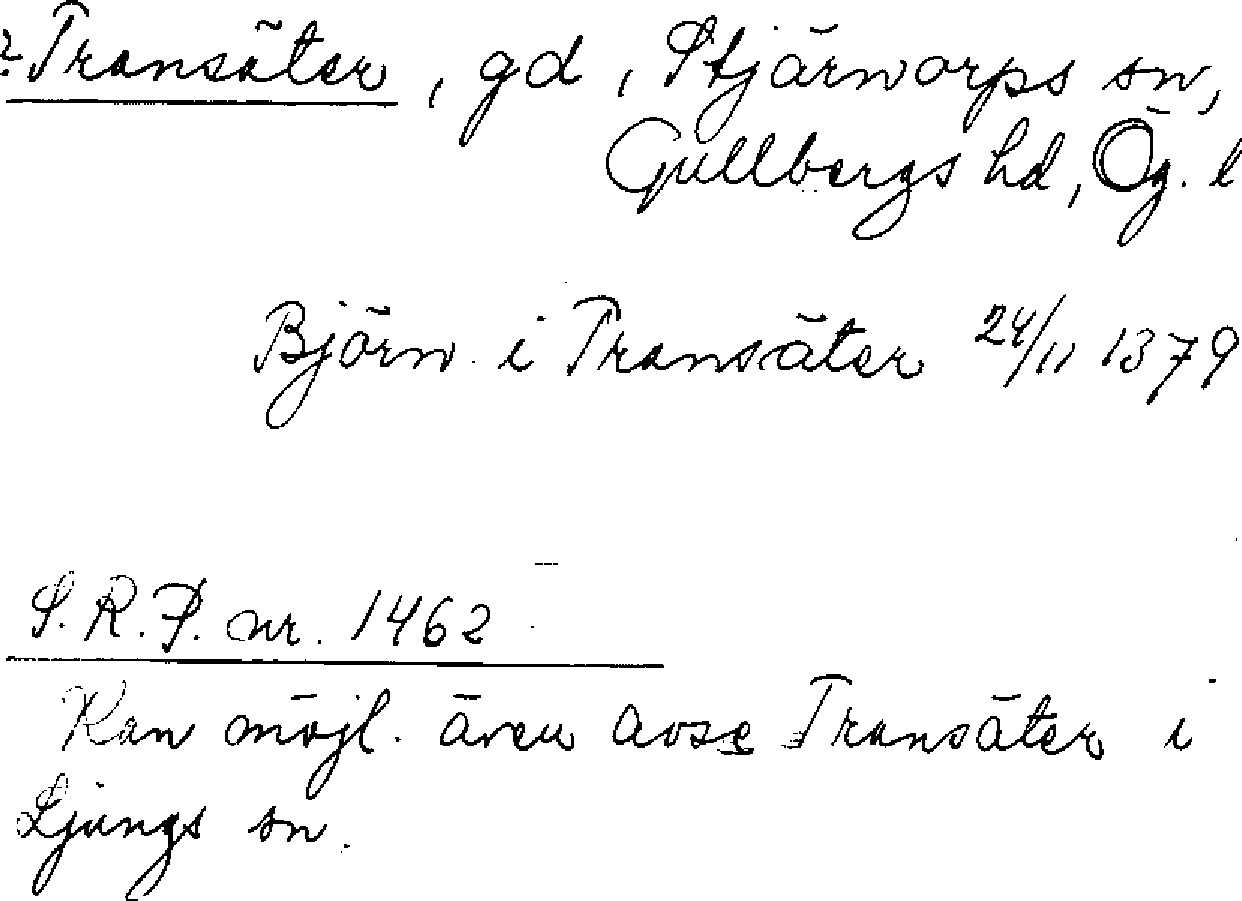 ? Transäter, gd, Stjärnorps sn,
Gullbergs hd, Ög. l
Björn i Transäter 24/11 1379
S.R.P. nr. 1462
Kan möjl. även avse Transäter i
Ljungs sn.